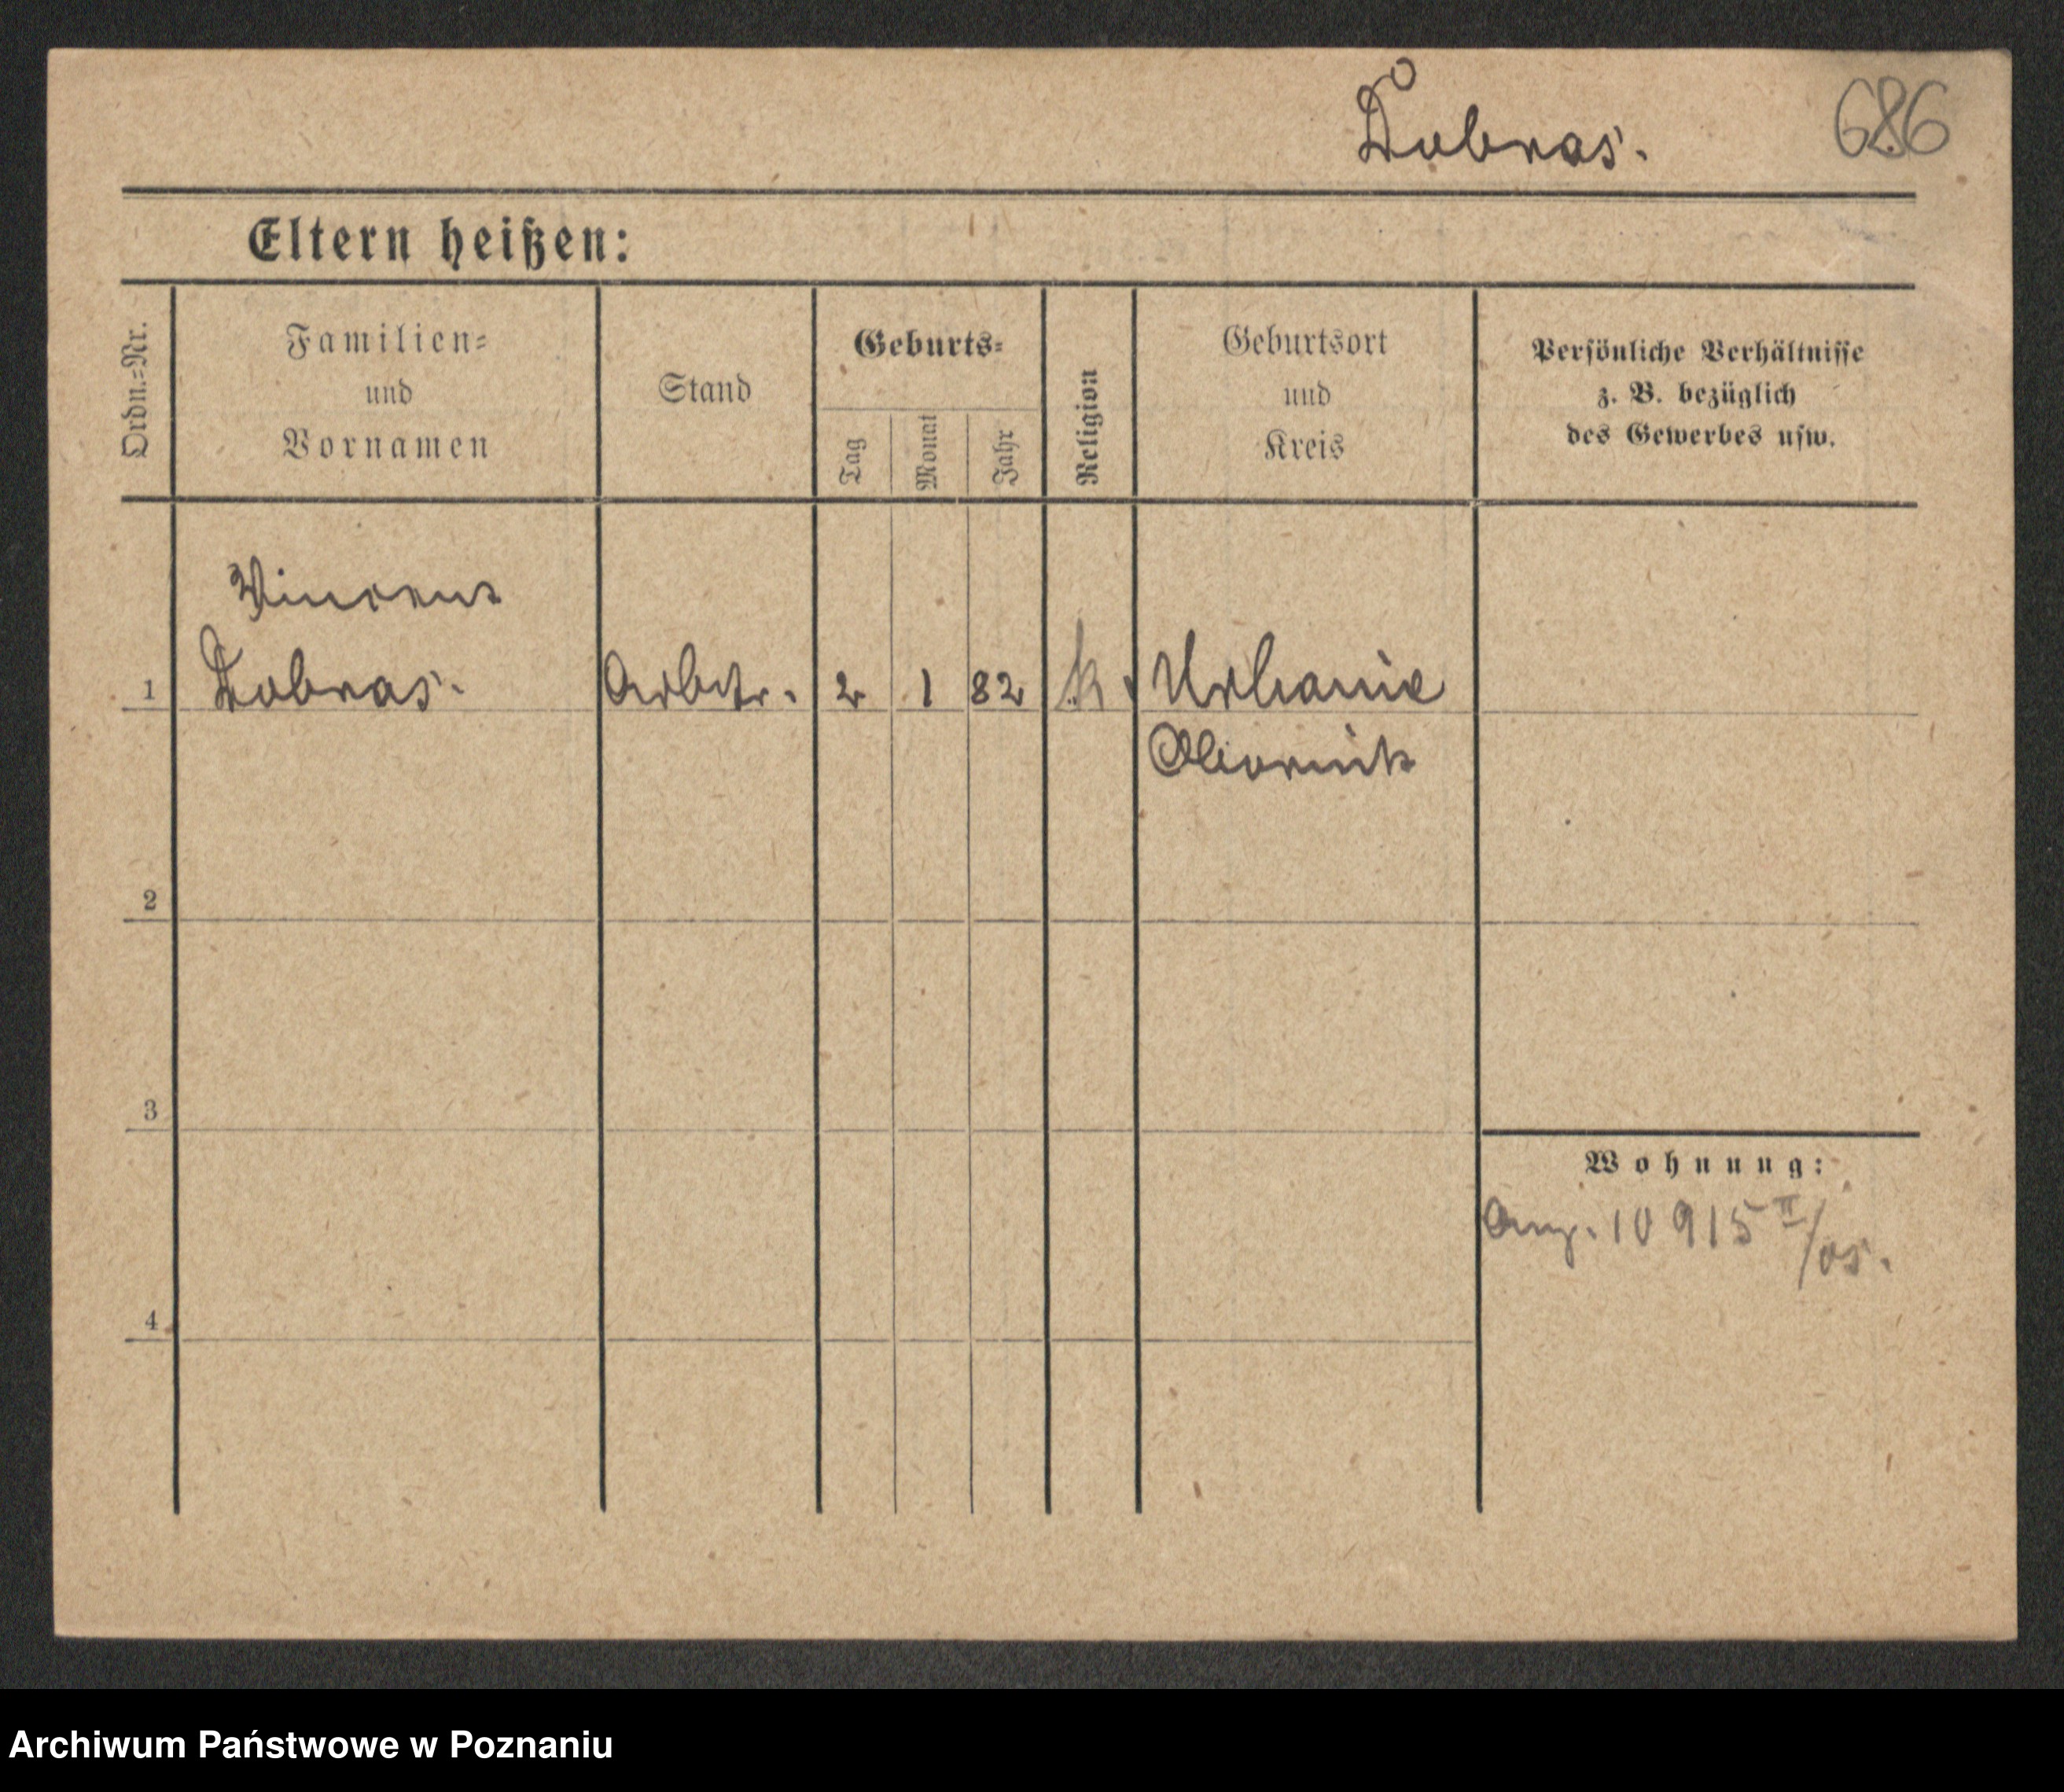 Dobras.
686
Eltern heißen:
Ordn.=Nr.
Familien=
und
Vornamen
Stand
Geburts=
Tag
Monat
Jahr
Religion
Geburtsort
und
Kreis
Persönliche Verhältnisse
z. B. bezüglich
des Gewerbes usw.
Vincent
1 Dobras. Arbtr. 2 1 82 k. Urbanie
Obornik
2
3
4
Wohnung:
Anz. 10915 II/05.
Archiwum Państwowe w Poznaniu